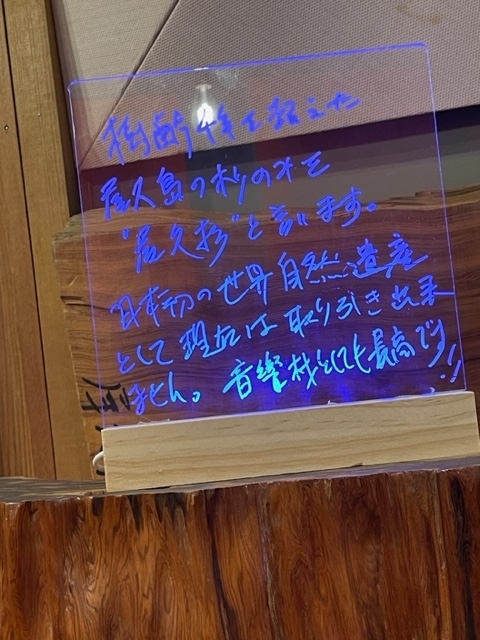 樹齢千年を超えた
屋久島の杉の木を
"屋久杉"と言います。
日本初の世界自然遺産
として現在は取り引き出来
ません。音響材としても最高です!!